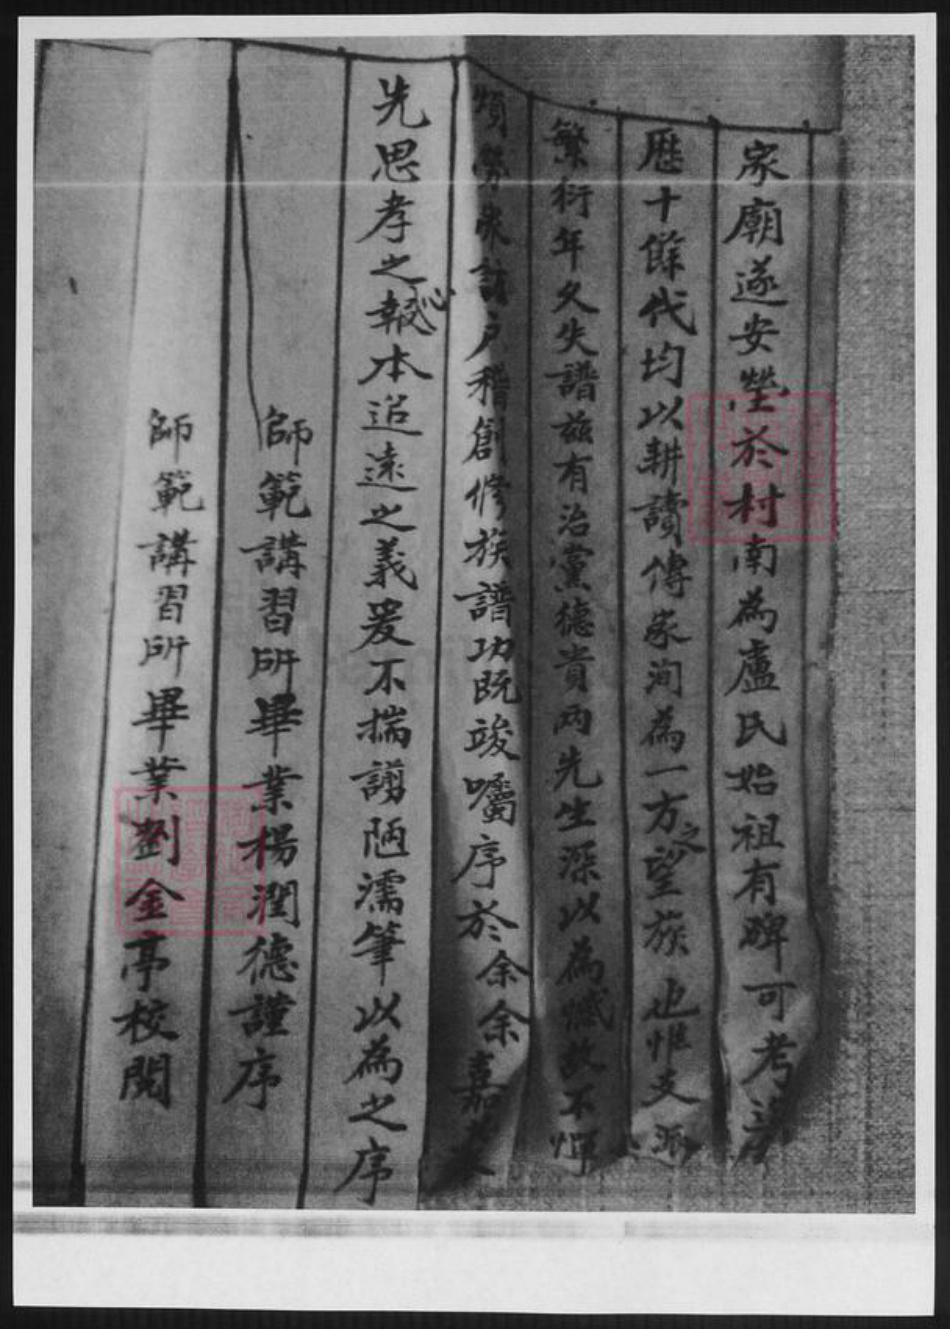 家廟遂安塋於村南為盧氏始祖有碑可考
歷十餘代均以耕讀傳家洵為一方之望族也惟支派
繁衍年久失譜茲有治黨德貴兩先生深以為憾故不憚
煩勞衆訪戶稽創修族譜功既竣囑序於余余嘉其
先思孝之心報本追遠之義爰不揣謭陋濡筆以為之序
師範講習所畢業楊潤德謹序
師範講習所畢業劉金亭校閱